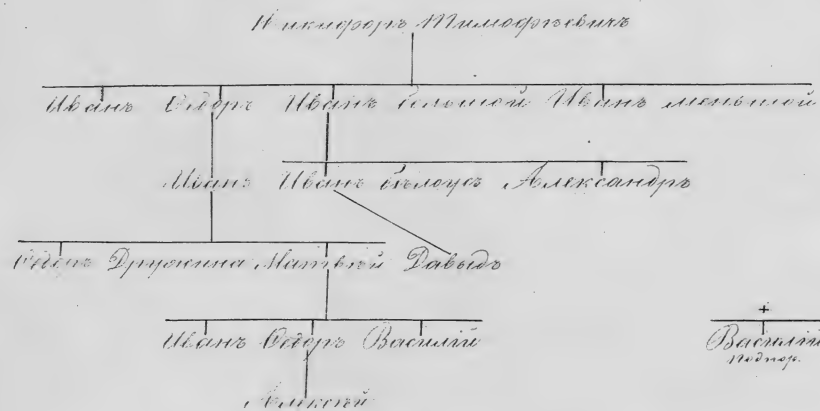 Никифоръ Тимофѣевичъ
Иванъ Ѳедоръ Иванъ большой Иванъ меньшой
Иванъ Иванъ бѣлоусъ Александръ
Ѳедоръ Дружина Матвѣй Давыдъ
Иванъ Ѳедоръ Василій Василій
Подпор.
Алексѣй